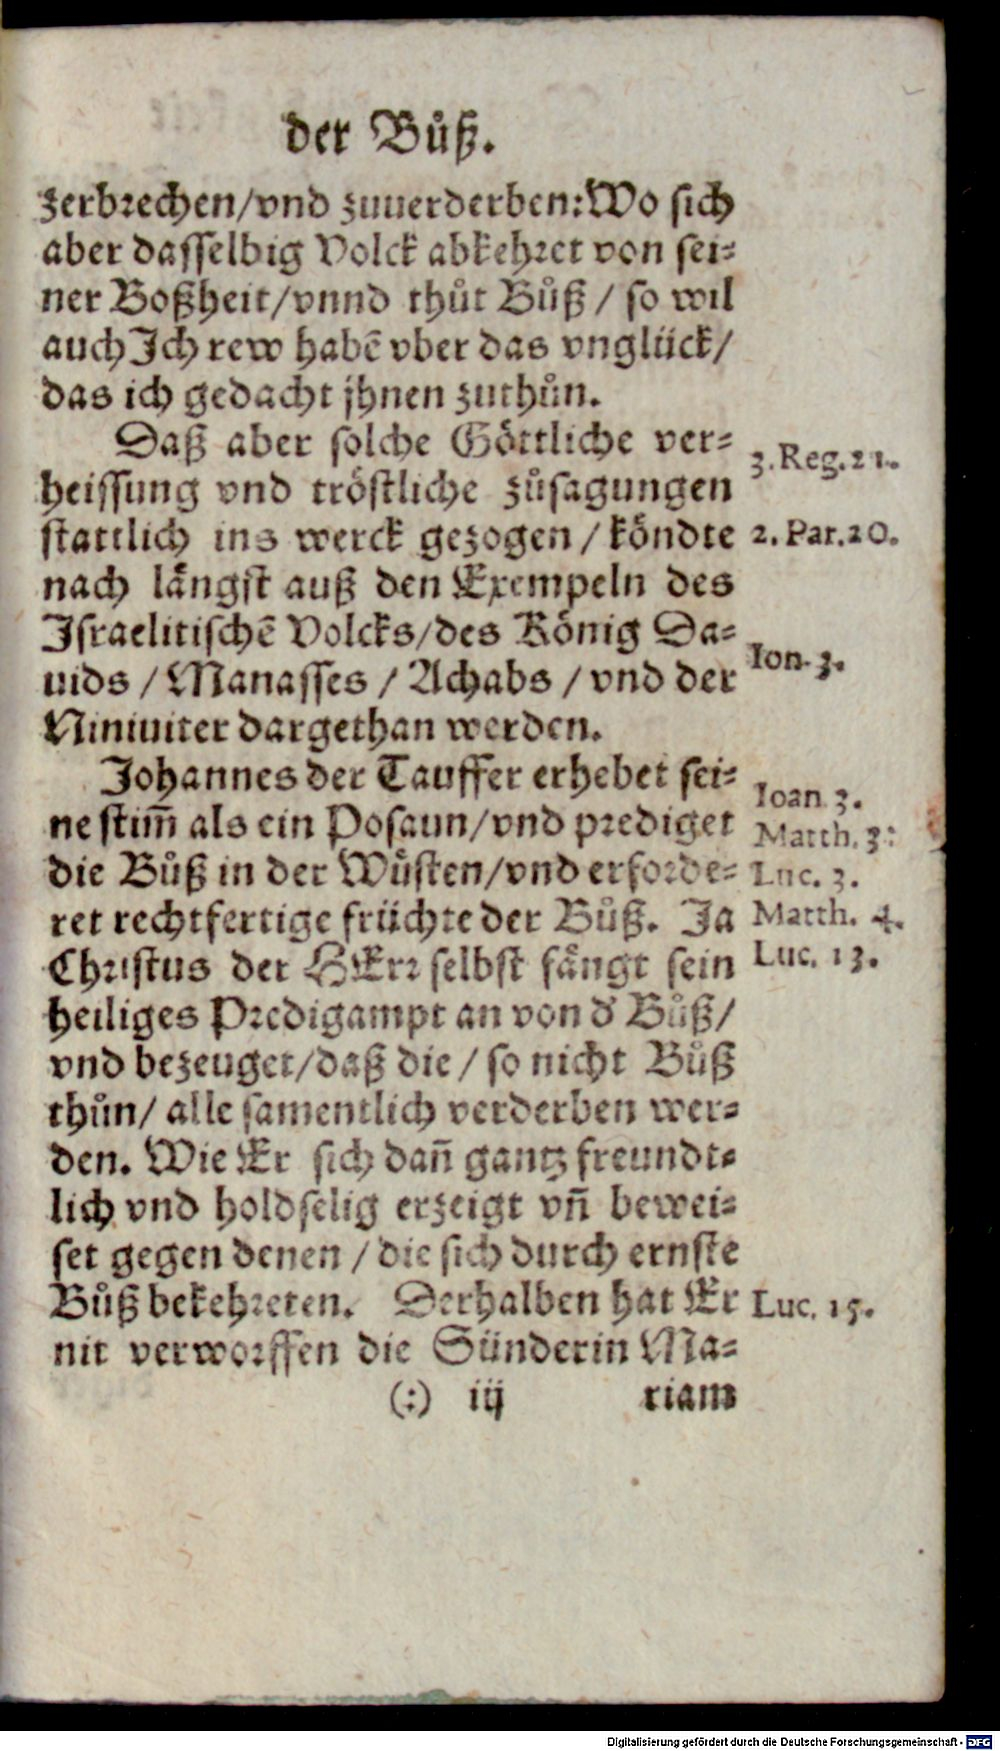 der Bůß.
zerbrechen/vnd zuuerderben: Wo sich
aber dasselbig Volck abkehret von sei-
ner Boßheit/vnnd thůt Bůß / so wil
auch Ich rew habẽ vber das vnglück/
das ich gedacht jhnen zuthůn.
Daß aber solche Göttliche ver-
heissung vnd tröstliche zůsagungen
stattlich ins werck gezogen / köndte
nach längst auß den Exempeln des
Israelitischẽ Volcks/des König Da-
uids / Manasses / Achabs / vnd der
Niniuiter dargethan werden.
3. Reg. 21.
2. Par. 20.
Ion. 3.
Johannes der Tauffer erhebet sei-
ne stim̃ als ein Posaun/vnd prediget
die Bůß in der Wüsten/vnd erforde-
ret rechtfertige früchte der Bůß. Ja
Christus der HErr selbst fängt sein
heiliges Predigampt an von d' Bůß/
vnd bezeuget/daß die / so nicht Bůß
thůn/ alle samentlich verderben wer-
den. Wie Er sich dañ gantz freundt-
lich vnd holdselig erzeigt vñ bewei-
set gegen denen / die sich durch ernste
Bůß bekehreten. Derhalben hat Er
nit verworffen die Sünderin Ma-
Ioan. 3.
Matth. 3:
Luc. 3.
Matth. 4.
Luc. 13.
Luc. 15.
(:) iij riam
Digitalisierung gefördert durch die Deutsche Forschungsgemeinschaft - DFG